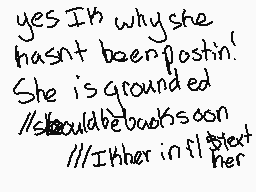 yes Ik why she
hasnt been postin!
She is grounded
//should be back soon
///Ik her in fl $text
her